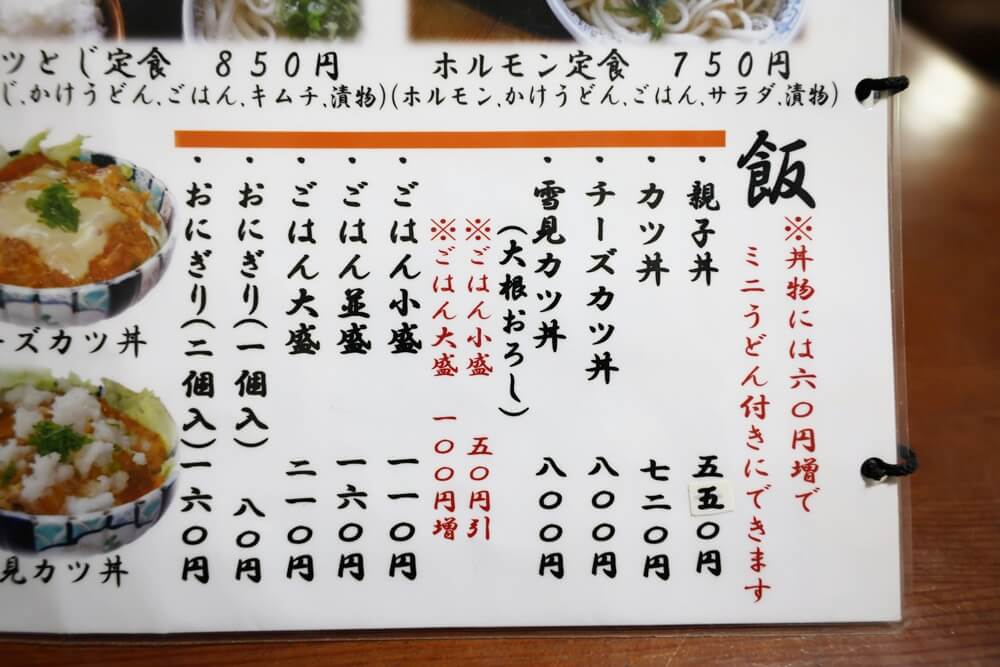 ツとじ定食 850円
じ、かけうどん、ごはん、キムチ、漬物)
ホルモン定食 750円
(ホルモン、かけうどん、ごはん、サラダ、漬物)
飯
※丼物には六〇円増で
ミニうどん付きにできます
・親子丼 五五〇円
・カツ丼 七二〇円
・チーズカツ丼 八〇〇円
・雪見カツ丼 八〇〇円
(大根おろし)
※ごはん小盛 五〇円引
※ごはん大盛 一〇〇円増
・ごはん小盛 一一〇円
・ごはん並盛 一六〇円
・ごはん大盛 二一〇円
・おにぎり(一個入) 八〇円
・おにぎり(二個入)一六〇円
ーズカツ丼
見カツ丼